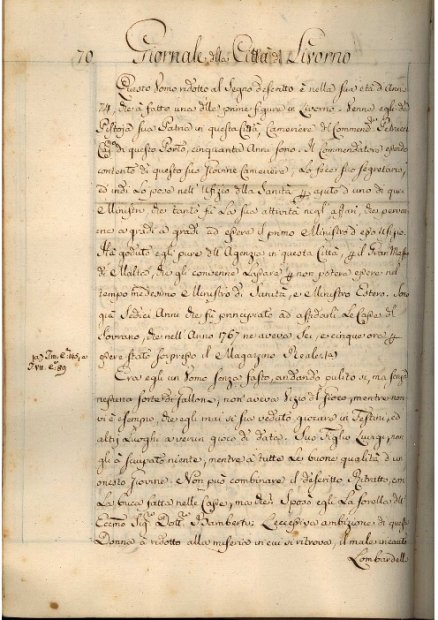 70 Giornale della Città di Livorno
Questo Uomo ridotto al Segno descritto è nella sua età d'Anni
74, che à fatto una delle prime figure in Livorno. Venne egli da
Pistoja sua Patria in questa Città, Cameriere del Commend.
di questo Porto, cinquanta Anni sono. Il Commendatore essendo
contento di questo suo Giovine Cameriere, lo fece suo segretario,
ed indi lo pose nell'Ufizio della Sanità aiuto d'uno di quei
Ministri, che tanto fu la sua attività negli afari, che perven-
ne a gradi a gradi ad essere il primo Ministro d'esso Ufizio.
Hà goduto egli pure dell'Agenzia in questa Città, il Gran
di Malta, che gli convenne lasciare non potere essere nel
tempo medesimo Ministro di Sanità, e Ministro Estero. Sono
quasi Sedici Anni che fu principiato ad afidarli le Casse di
che nell'Anno 1767 ne aveva Sei, e cinque ore
essere stato sorpreso il Magazzino Realerta
Era egli un Uomo senza fasto, andando pulito si, ma senza
nessuna sorte di Gallone, non aveva Vizio di Gioco, mentre non
vi è esempio, che egli mai si sia veduto giocare in Festini, ed
altri Luoghi a verun gioco di data. Suo Figlio Luigi, non
gli à sciupato niente, mentre à tutte le buone qualità d'un
onesto Giovine. Non può combinare il descritto Ritratto, con
la buca fatta nelle Casse, ma che? Sposò egli la Sorella dell'
Eccmo Sig. Dott. Lambertu. L'eccessiva ambizione di questa
Donna à ridotto alla miseria in cui si ritrova, il male incauto
Lombardelli